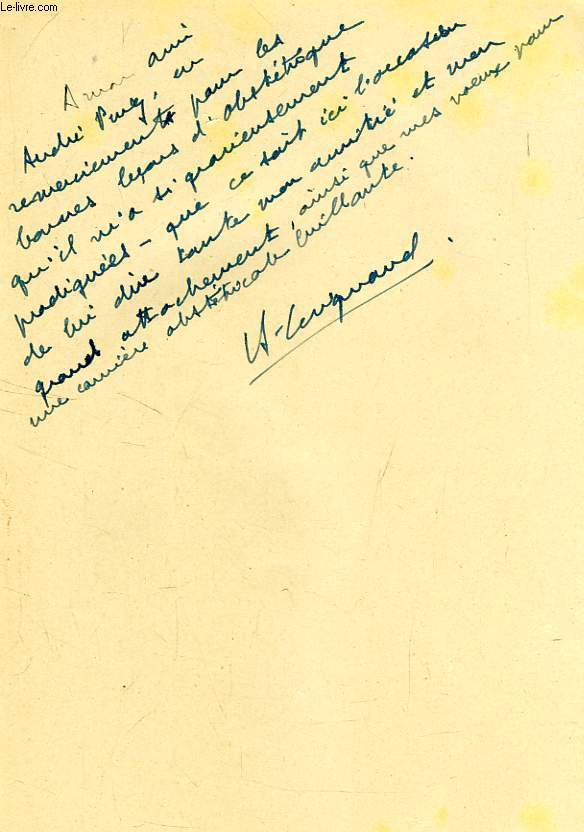 Le-livre.com
A mon ami
André , en
remerciements pour les
bonnes leçons d'obstétrique
qu'il m'a si gracieusement
prodiguées - que ce soit ici l'occasion
de lui dire toute mon amitié et mon
grand attachement, ainsi que mes voeux pour
une carrière obstétricale brillante.